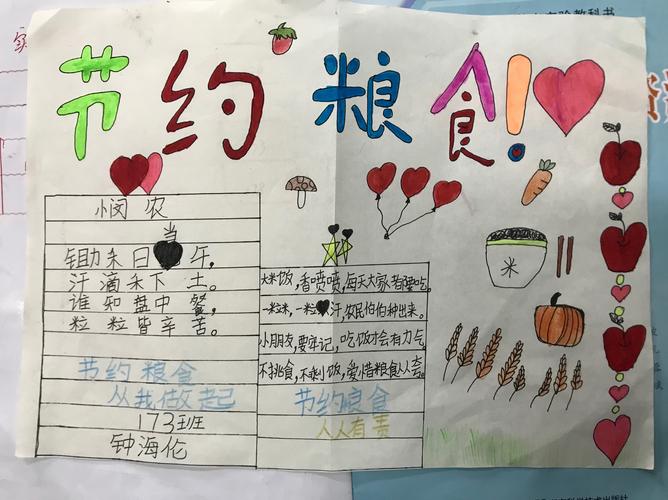 节约粮食!
悯农
当
锄禾日午。
汗滴禾下土。
谁知盘中餐,
粒粒皆辛苦。
节约粮食
从我做起
173班
钟海伦
大米饭,香喷喷,每天大家都要吃。
一粒米,一粒汗,农民伯伯种出来。
小朋友,要牢记,吃饭才会有力气
不挑食,不剩饭,爱惜粮食从人夸。
节约粮食
人人有责
米
教科书